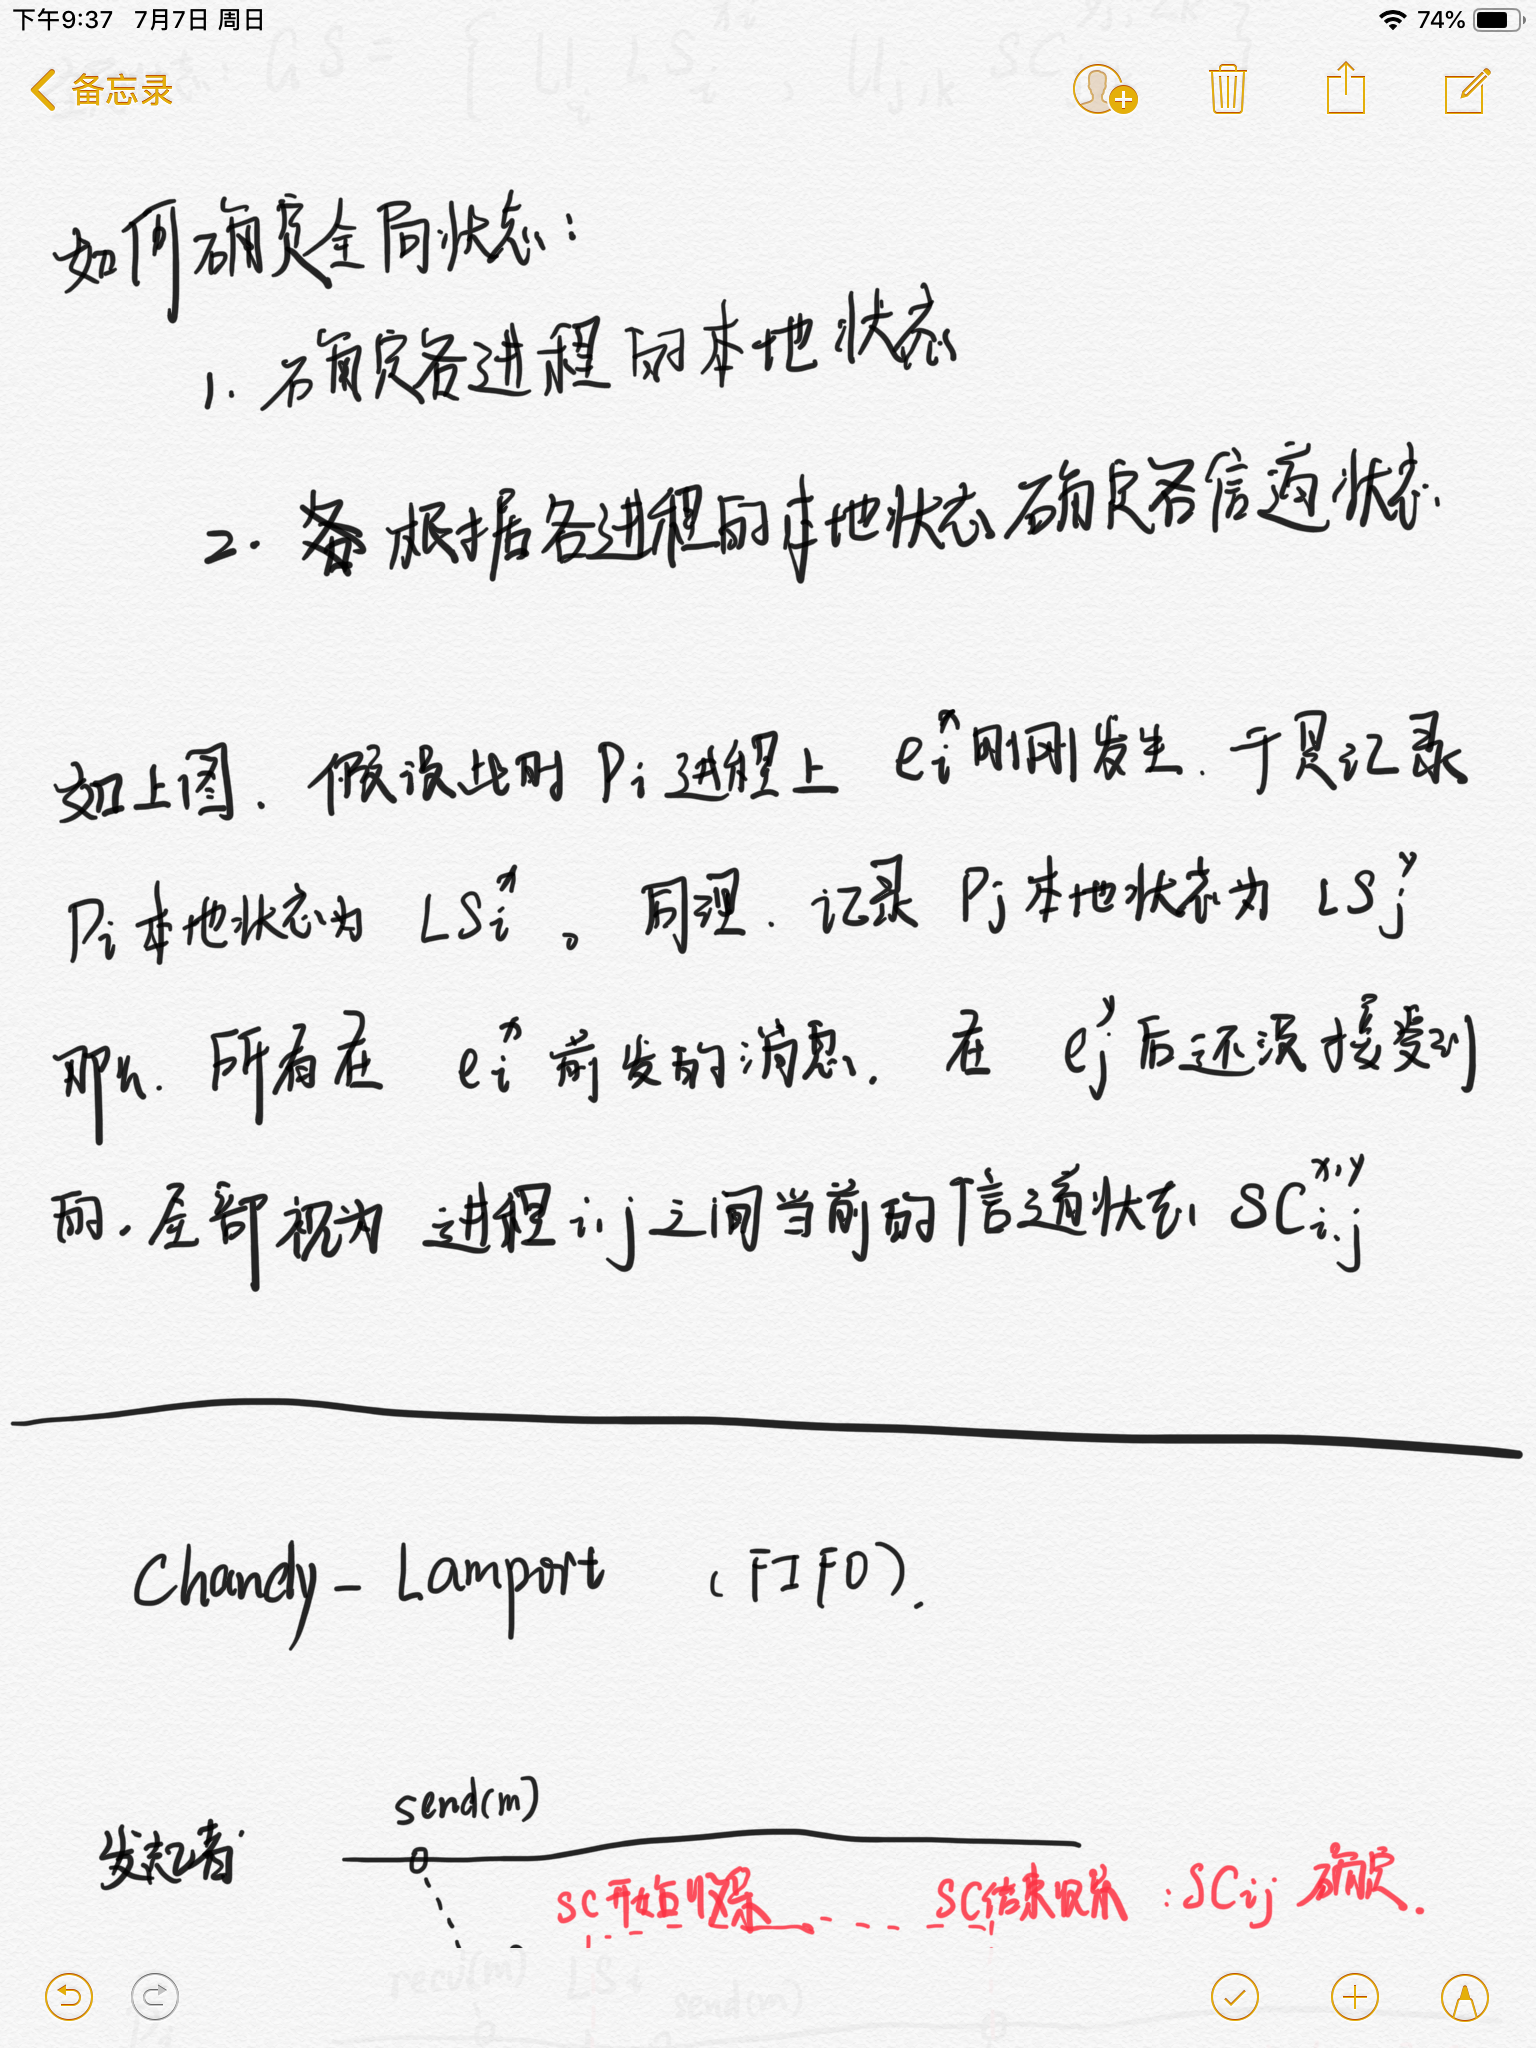 下午9:37 7月7日 周日 74%
全局状态: GS = { ∪i LSi , ∪j,k SC }
备忘录
如何确定全局状态:
1. 确定各进程的本地状态
2. 根据各进程的本地状态确定各信道状态.
如上图. 假设此时 Pi 进程上 e_i^x 刚刚发生. 于是记录
Pi 本地状态为 LS_i^x 。同理. 记录 Pj 本地状态为 LS_j^y
那么. 所有在 e_i^x 前发的消息. 在 e_j^y 后还没接受到
的. 全部视为 进程 i,j 之间当前的信道状态 SC_{i,j}^{x,y}
Chandy-Lamport (FIFO).
send(m)
发起者
SC开始收录 SC结束收录 : SCij 确定.
recv(m) LSi send(m)
Pi